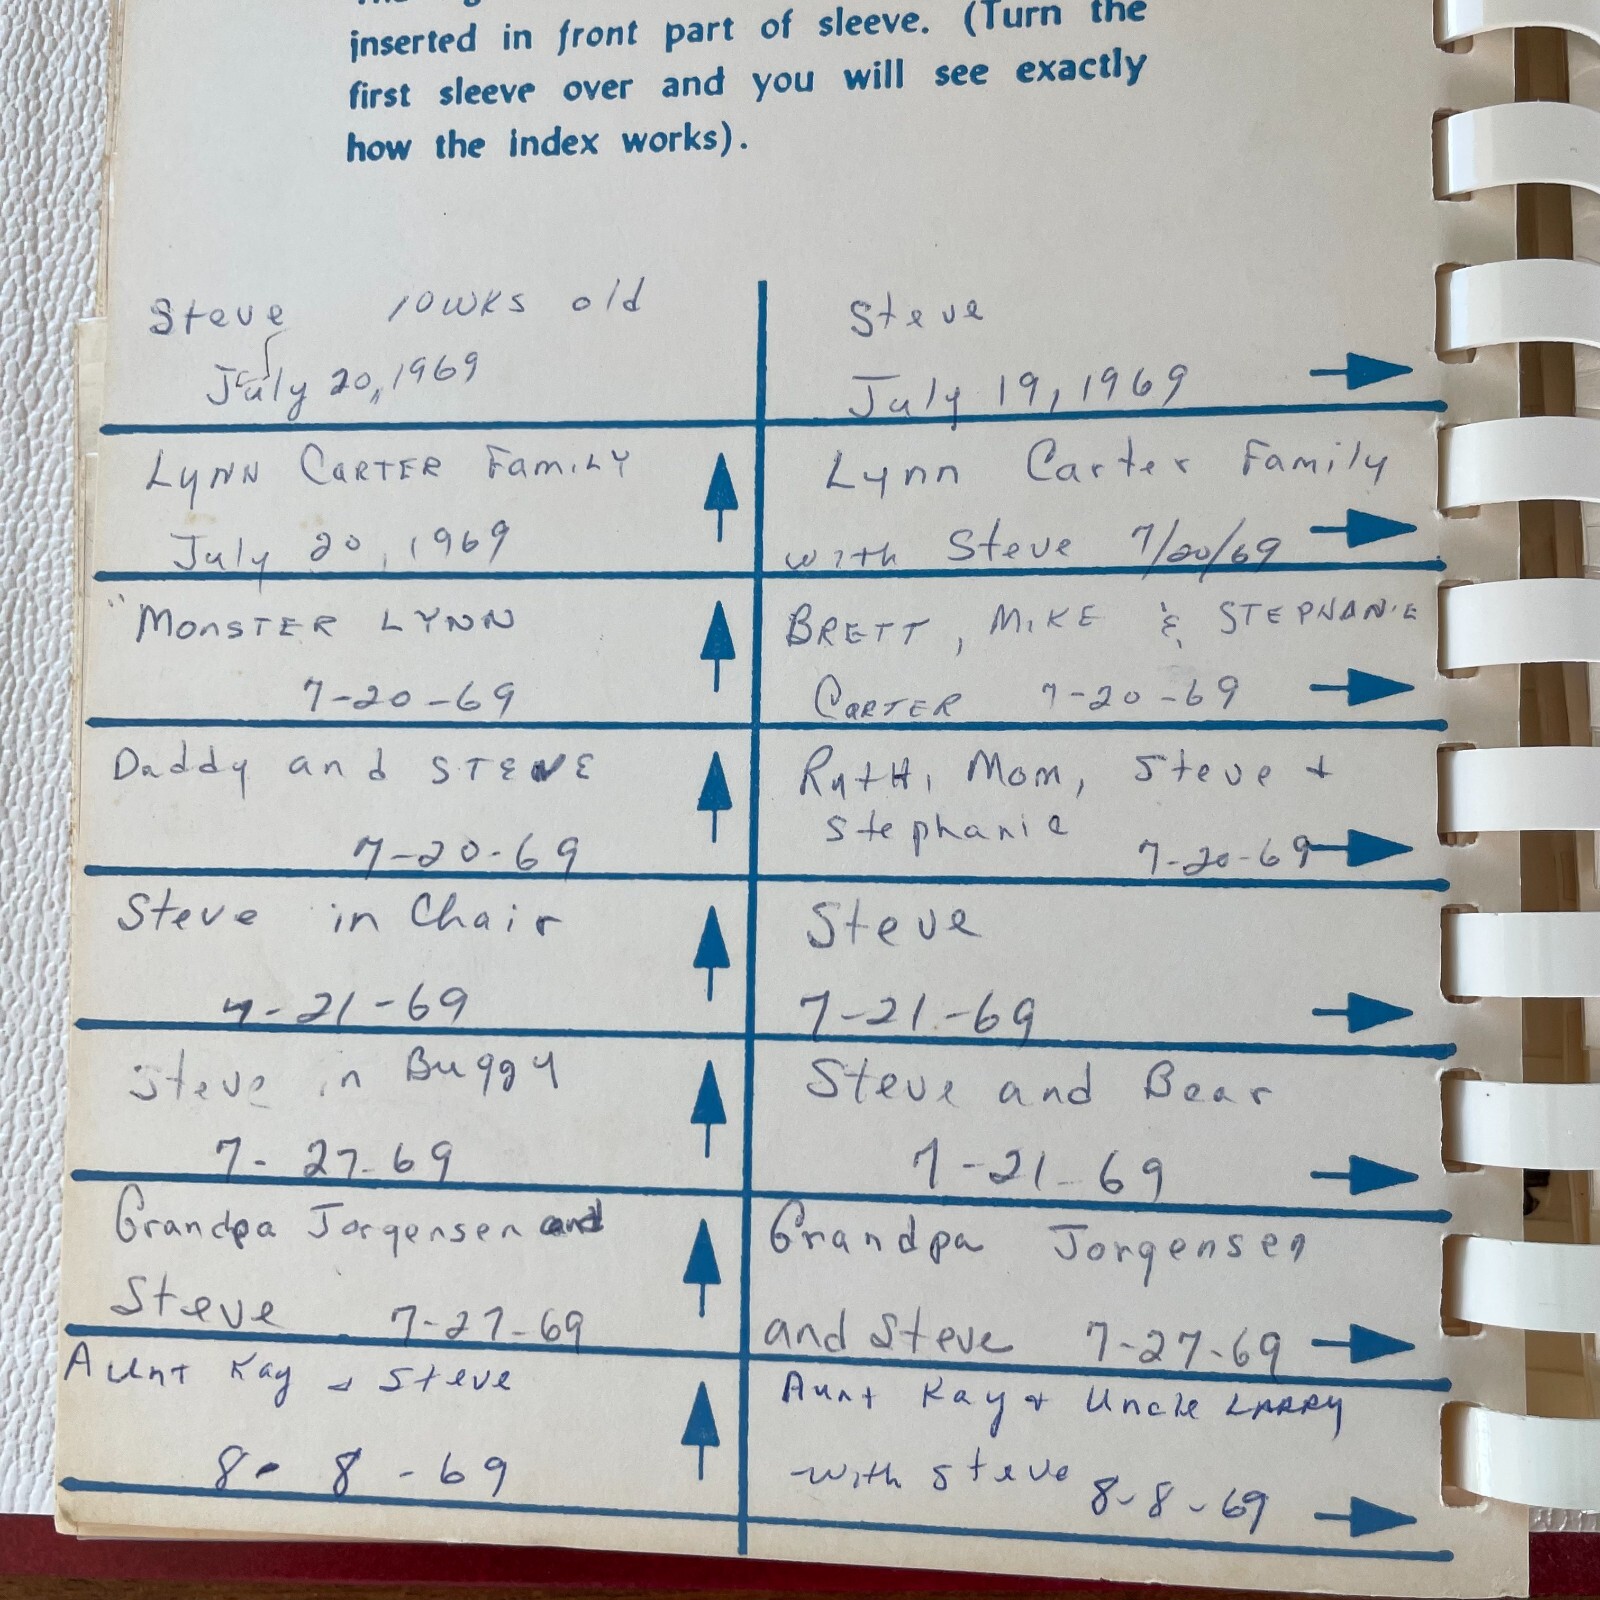 inserted in front part of sleeve. (Turn the
first sleeve over and you will see exactly
how the index works).
Steve 10wks old
July 20, 1969
Steve
July 19, 1969
LYNN CARTER FAMILY
July 20, 1969
Lynn Carter Family
with Steve 7/20/69
"MONSTER LYNN
7-20-69
BRETT, MIKE & STEPHANIE
CARTER 7-20-69
Daddy and STEVE
7-20-69
RutH, Mom, Steve +
Stephanie
7-20-69
Steve in Chair
7-21-69
Steve
7-21-69
Steve in Buggy
7-27-69
Steve and Bear
7-21-69
Grandpa Jorgensen and
Steve 7-27-69
Grandpa Jorgensen
and Steve 7-27-69
Aunt Kay & Steve
8-8-69
Aunt Kay + Uncle LARRY
with Steve 8-8-69